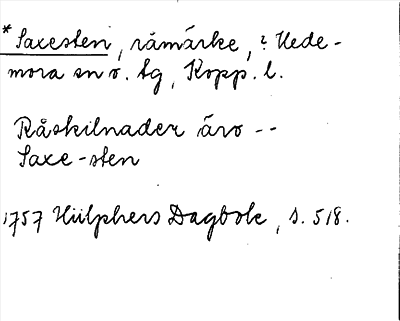 *Saxesten, råmärke, ? Hede-
mora sn o. tg, Kopp. l.
Råskilnader äro --
Saxe-sten
1757 Hülphers Dagbok, s. 518.